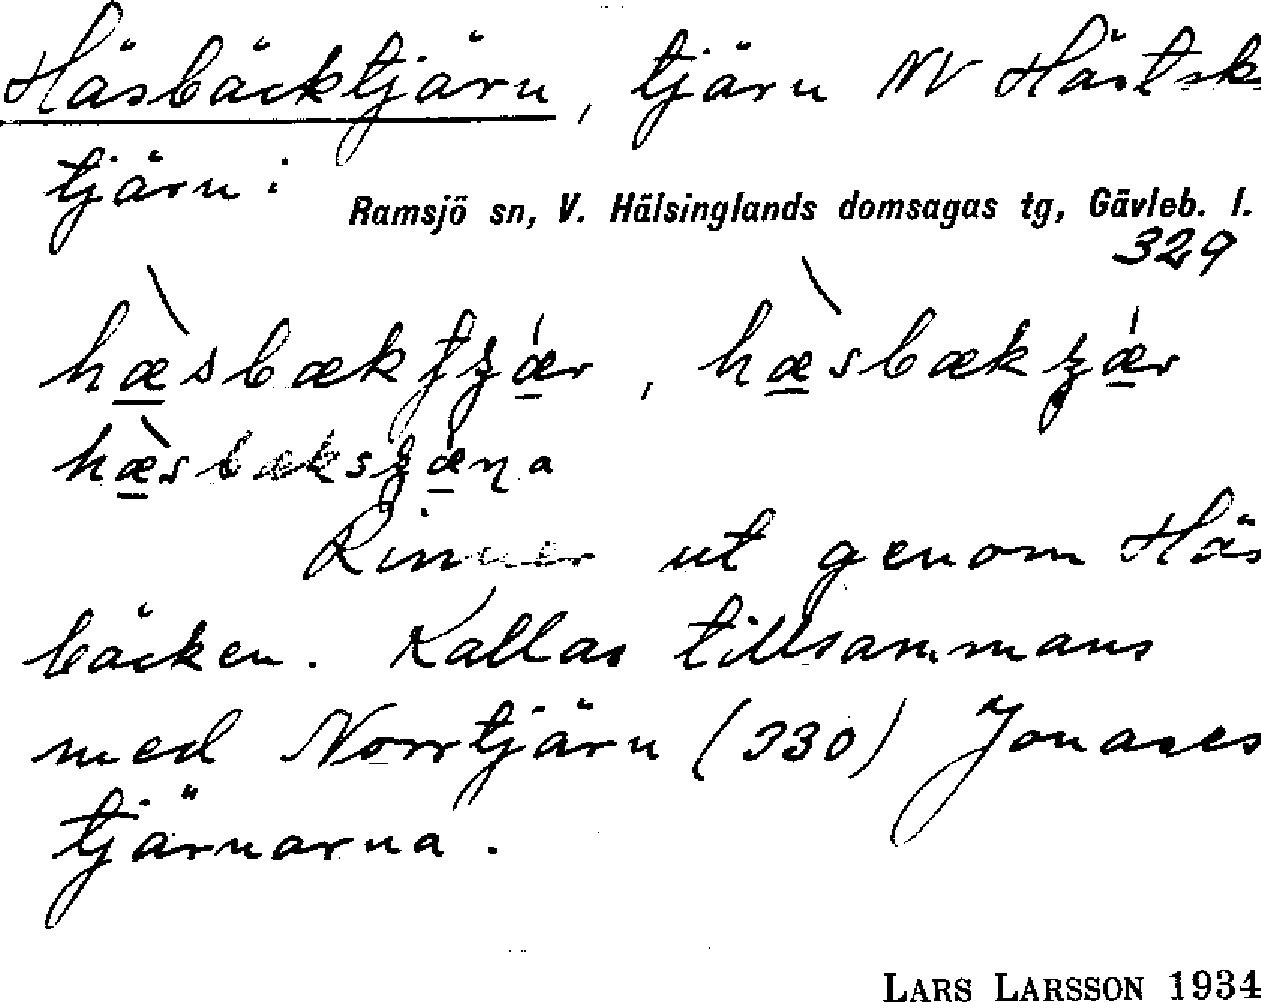 Häsbäcktjärn, tjärn NV Hästsk
tjärn i
Ramsjö sn, V. Hälsinglands domsagas tg, Gävleb. l.
329
Rinner ut genom Häs
bäcken. Kallas tillsammans
med Norrtjärn (330) Jonases
tjärnarna.
LARS LARSSON 1934